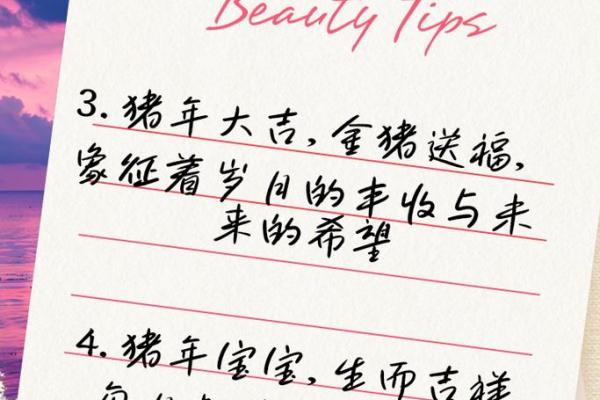 Beauty Tips
3. 猪年大吉，金猪送福，
象征着岁月的丰收与未
来的希望
4. 猪年宝宝，生而吉祥